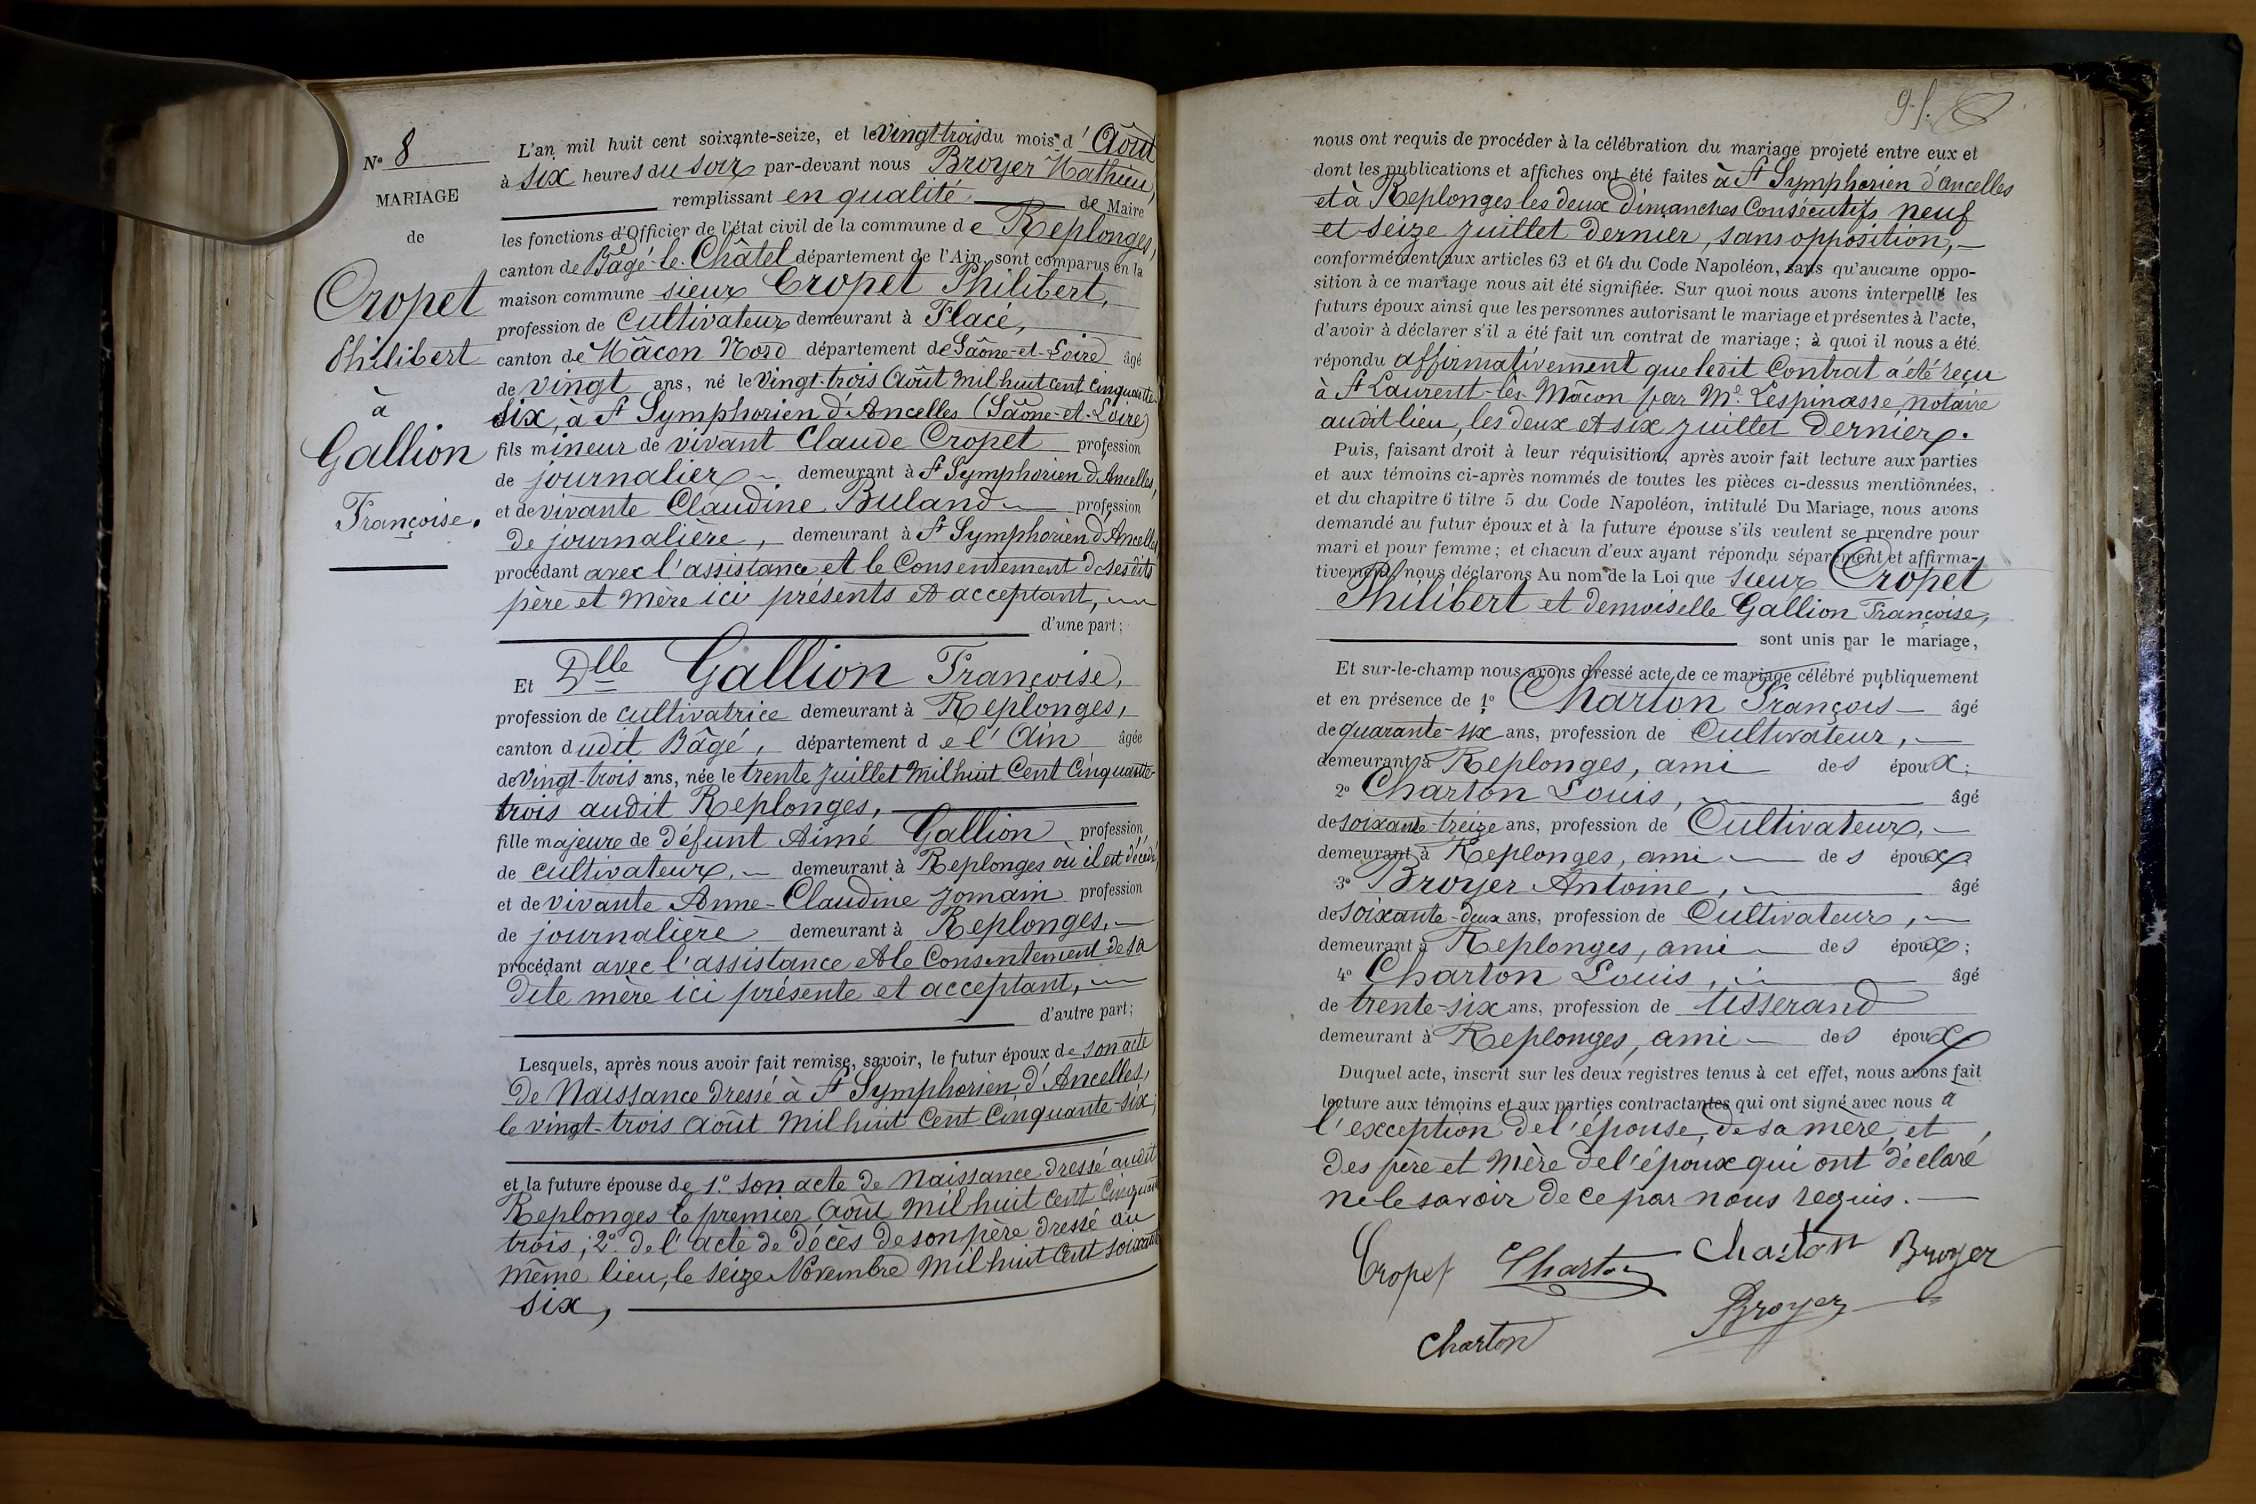 N° 8
MARIAGE
de
Cropet
Philibert
à
Gallion
Françoise.
L'an mil huit cent soixante-seize, et le vingt trois du mois d'Août
à six heures du soir par-devant nous Broyer Mathieu,
remplissant en qualité de Maire
les fonctions d'Officier de l'état civil de la commune de Replonges,
canton de Bâgé-le-Châtel département de l'Ain, sont comparus en la
maison commune sieur Cropet Philibert,
profession de Cultivateur demeurant à Flacé,
canton de Mâcon Nord département de Saône-et-Loire âgé
de vingt ans, né le Vingt-trois Août mil huit cent cinquante
six, à St Symphorien d'Ancelles (Saône-et-Loire)
fils mineur de vivant Claude Cropet profession
de journalier demeurant à St Symphorien d'Ancelles,
et de vivante Claudine Buland profession
de journalière, demeurant à St Symphorien d'Ancelles
procédant avec l'assistance et le Consentement de sesdits
père et mère ici présents et acceptant,
d'une part;
Et Dlle Gallion Françoise,
profession de cultivatrice demeurant à Replonges,
canton dudit Bâgé, département de l'Ain âgée
de Vingt-trois ans, née le trente juillet mil huit Cent Cinquante-
trois audit Replonges,
fille majeure de défunt Aimé Gallion profession
de cultivateur, demeurant à Replonges où il est décédé,
et de vivante Anne-Claudine Jomain profession
de journalière demeurant à Replonges,
procédant avec l'assistance et le Consentement de sa
dite mère ici présente et acceptant,
d'autre part;
Lesquels, après nous avoir fait remise, savoir, le futur époux de son acte
de Naissance dressé à St Symphorien d'Ancelles,
le vingt-trois août mil huit Cent Cinquante-six;
et la future épouse de 1° son acte de naissance dressé audit
Replonges le premier Août mil huit cent cinquante
trois; 2° de l'acte de décès de son père dressé au
même lieu, le seize Novembre mil huit Cent soixante
six,
91.
nous ont requis de procéder à la célébration du mariage projeté entre eux et
dont les publications et affiches ont été faites à St Symphorien d'ancelles
et à Replonges les deux Dimanches Consécutifs neuf
et seize juillet dernier, sans opposition,
conformément aux articles 63 et 64 du Code Napoléon, sans qu'aucune oppo-
sition à ce mariage nous ait été signifiée. Sur quoi nous avons interpellé les
futurs époux ainsi que les personnes autorisant le mariage et présentes à l'acte,
d'avoir à déclarer s'il a été fait un contrat de mariage; à quoi il nous a été
répondu affirmativement que ledit Contrat a été reçu
à St Laurent-lès-Mâcon par Me Lespinasse, notaire
audit lieu, les deux et six juillet dernier.
Puis, faisant droit à leur réquisition, après avoir fait lecture aux parties
et aux témoins ci-après nommés de toutes les pièces ci-dessus mentionnées,
et du chapitre 6 titre 5 du Code Napoléon, intitulé Du Mariage, nous avons
demandé au futur époux et à la future épouse s'ils veulent se prendre pour
mari et pour femme; et chacun d'eux ayant répondu séparément et affirma-
tivement, nous déclarons Au nom de la Loi que sieur Cropet
Philibert et demoiselle Gallion Françoise,
sont unis par le mariage,
Et sur-le-champ nous avons dressé acte de ce mariage célébré publiquement
et en présence de 1° Charton François âgé
de quarante-six ans, profession de Cultivateur,
demeurant à Replonges, ami des époux;
2° Charton Louis, âgé
de soixante-treize ans, profession de Cultivateur,
demeurant à Replonges, ami des époux;
3° Broyer Antoine, âgé
de soixante-deux ans, profession de Cultivateur,
demeurant à Replonges, ami des époux;
4° Charton Louis, âgé
de trente-six ans, profession de tisserand
demeurant à Replonges, ami des époux
Duquel acte, inscrit sur les deux registres tenus à cet effet, nous avons fait
lecture aux témoins et aux parties contractantes qui ont signé avec nous à
l'exception de l'épouse, de sa mère, et
des père et mère de l'époux qui ont déclaré
ne le savoir de ce par nous requis.
Cropet Charton Charton Broyer
Broyer
Charton